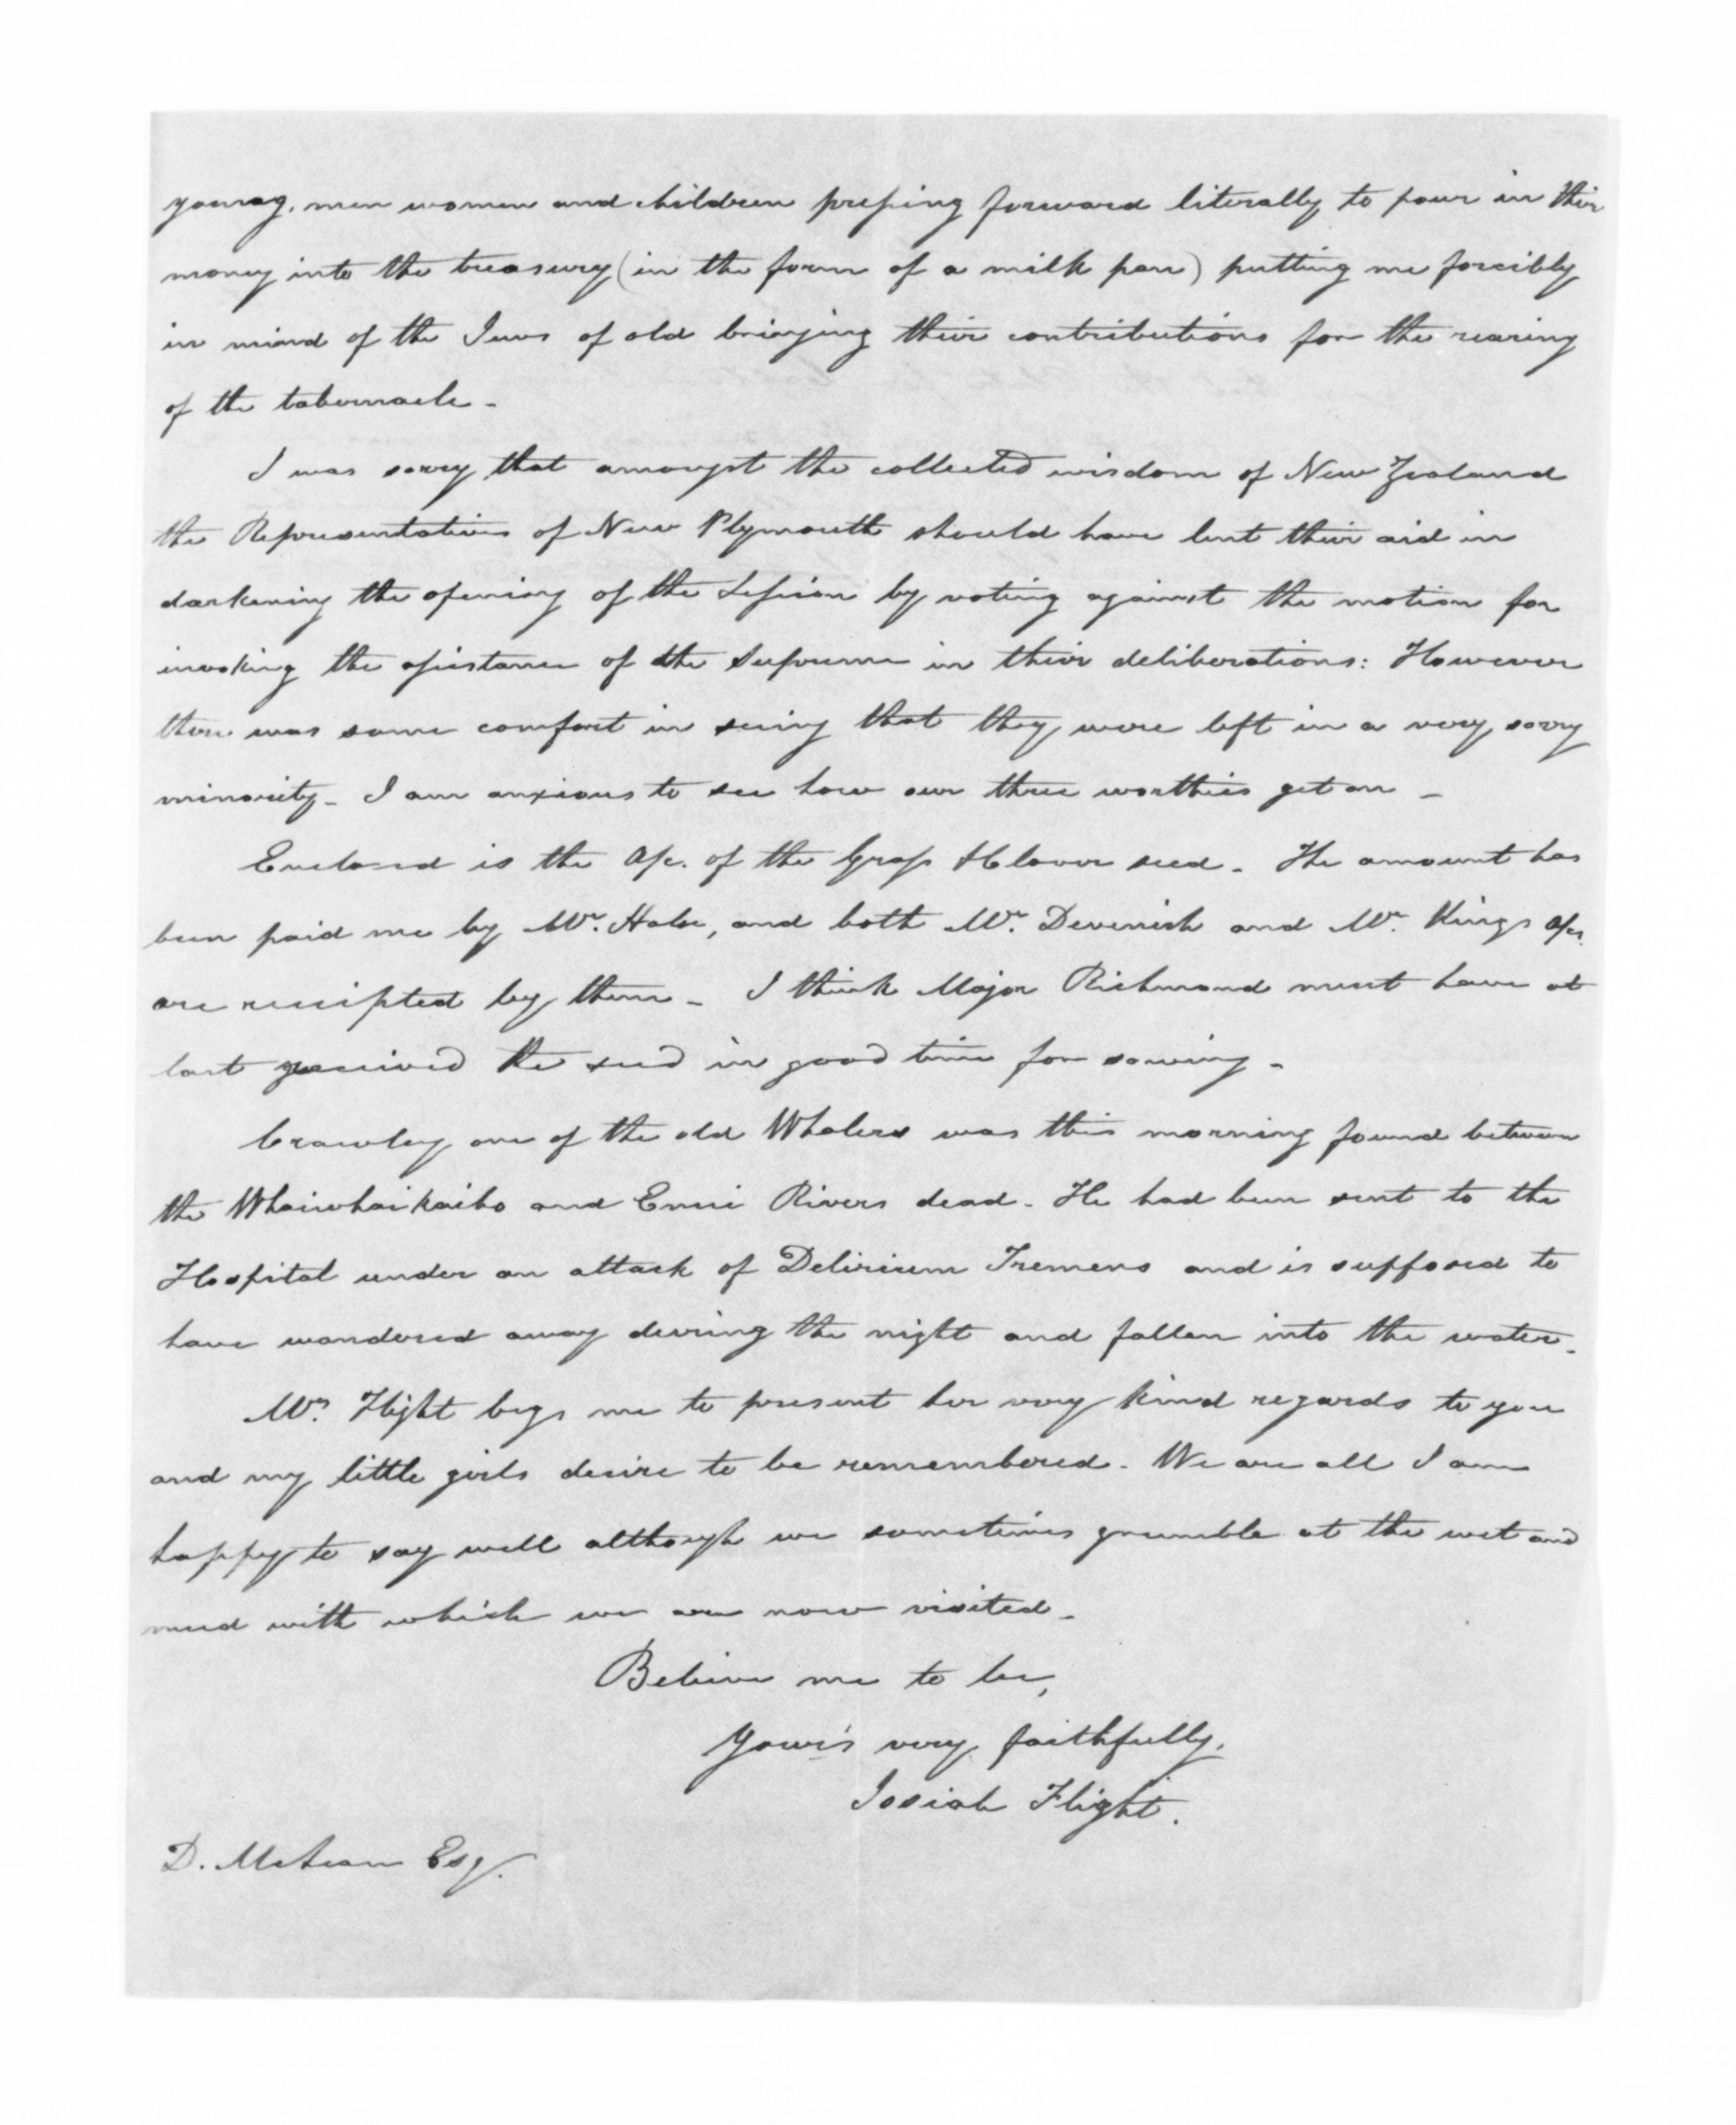 young, men women and children pressing forward literally to pour in their
money into the treasury (in the form of a milk pan) putting me forcibly
in mind of the Jews of old bringing their contributions for the rearing
of the tabernacle -
I was sorry that amongst the collected wisdom of New Zealand
the Representatives of New Plymouth should have lent their aid in
darkening the opening of the Session by voting against the motion for
invoking the assistance of the Supreme in their deliberations: However
there was some comfort in seeing that they were left in a very sorry
minority - I am anxious to see how our three worthies get on -
Enclosed is the a/c. of the Grass & Clover seed - The amount has
been paid me by Mr. Halse, and both Mr. Devenish and Mr. Kings a/cs
are receipted by them - I think Major Richmond must have at
last received the seed in good time for sowing -
Crawley one of the old Whalers was this morning found between
the Whaiwhaikaiho and Enui Rivers dead - He had been sent to the
Hospital under an attack of Delirium Tremens and is supposed to
have wandered away during the night and fallen into the water -
Mrs. Flight begs me to present her very kind regards to you
and my little girls desire to be remembered - We are all I am
happy to say well although we sometimes grumble at the wet and
mud with which we are now visited -
Believe me to be,
Your's very faithfully,
Josiah Flight.
D. McLean Esq.